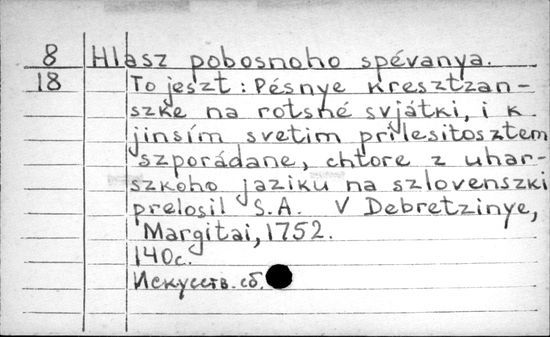 8 Hlasz pobosnoho spévanya.
18 To jeszt: Pésnye kresztzan-
szke na rotsné svjátki, i k
jinsím svetim prílesitosztem
szporádane, chtore z uhar-
szkoho jaziku na szlovenszki
prelosil S.A. V Debretzinye,
Margitai, 1752.
140с.
Искусств. сб.